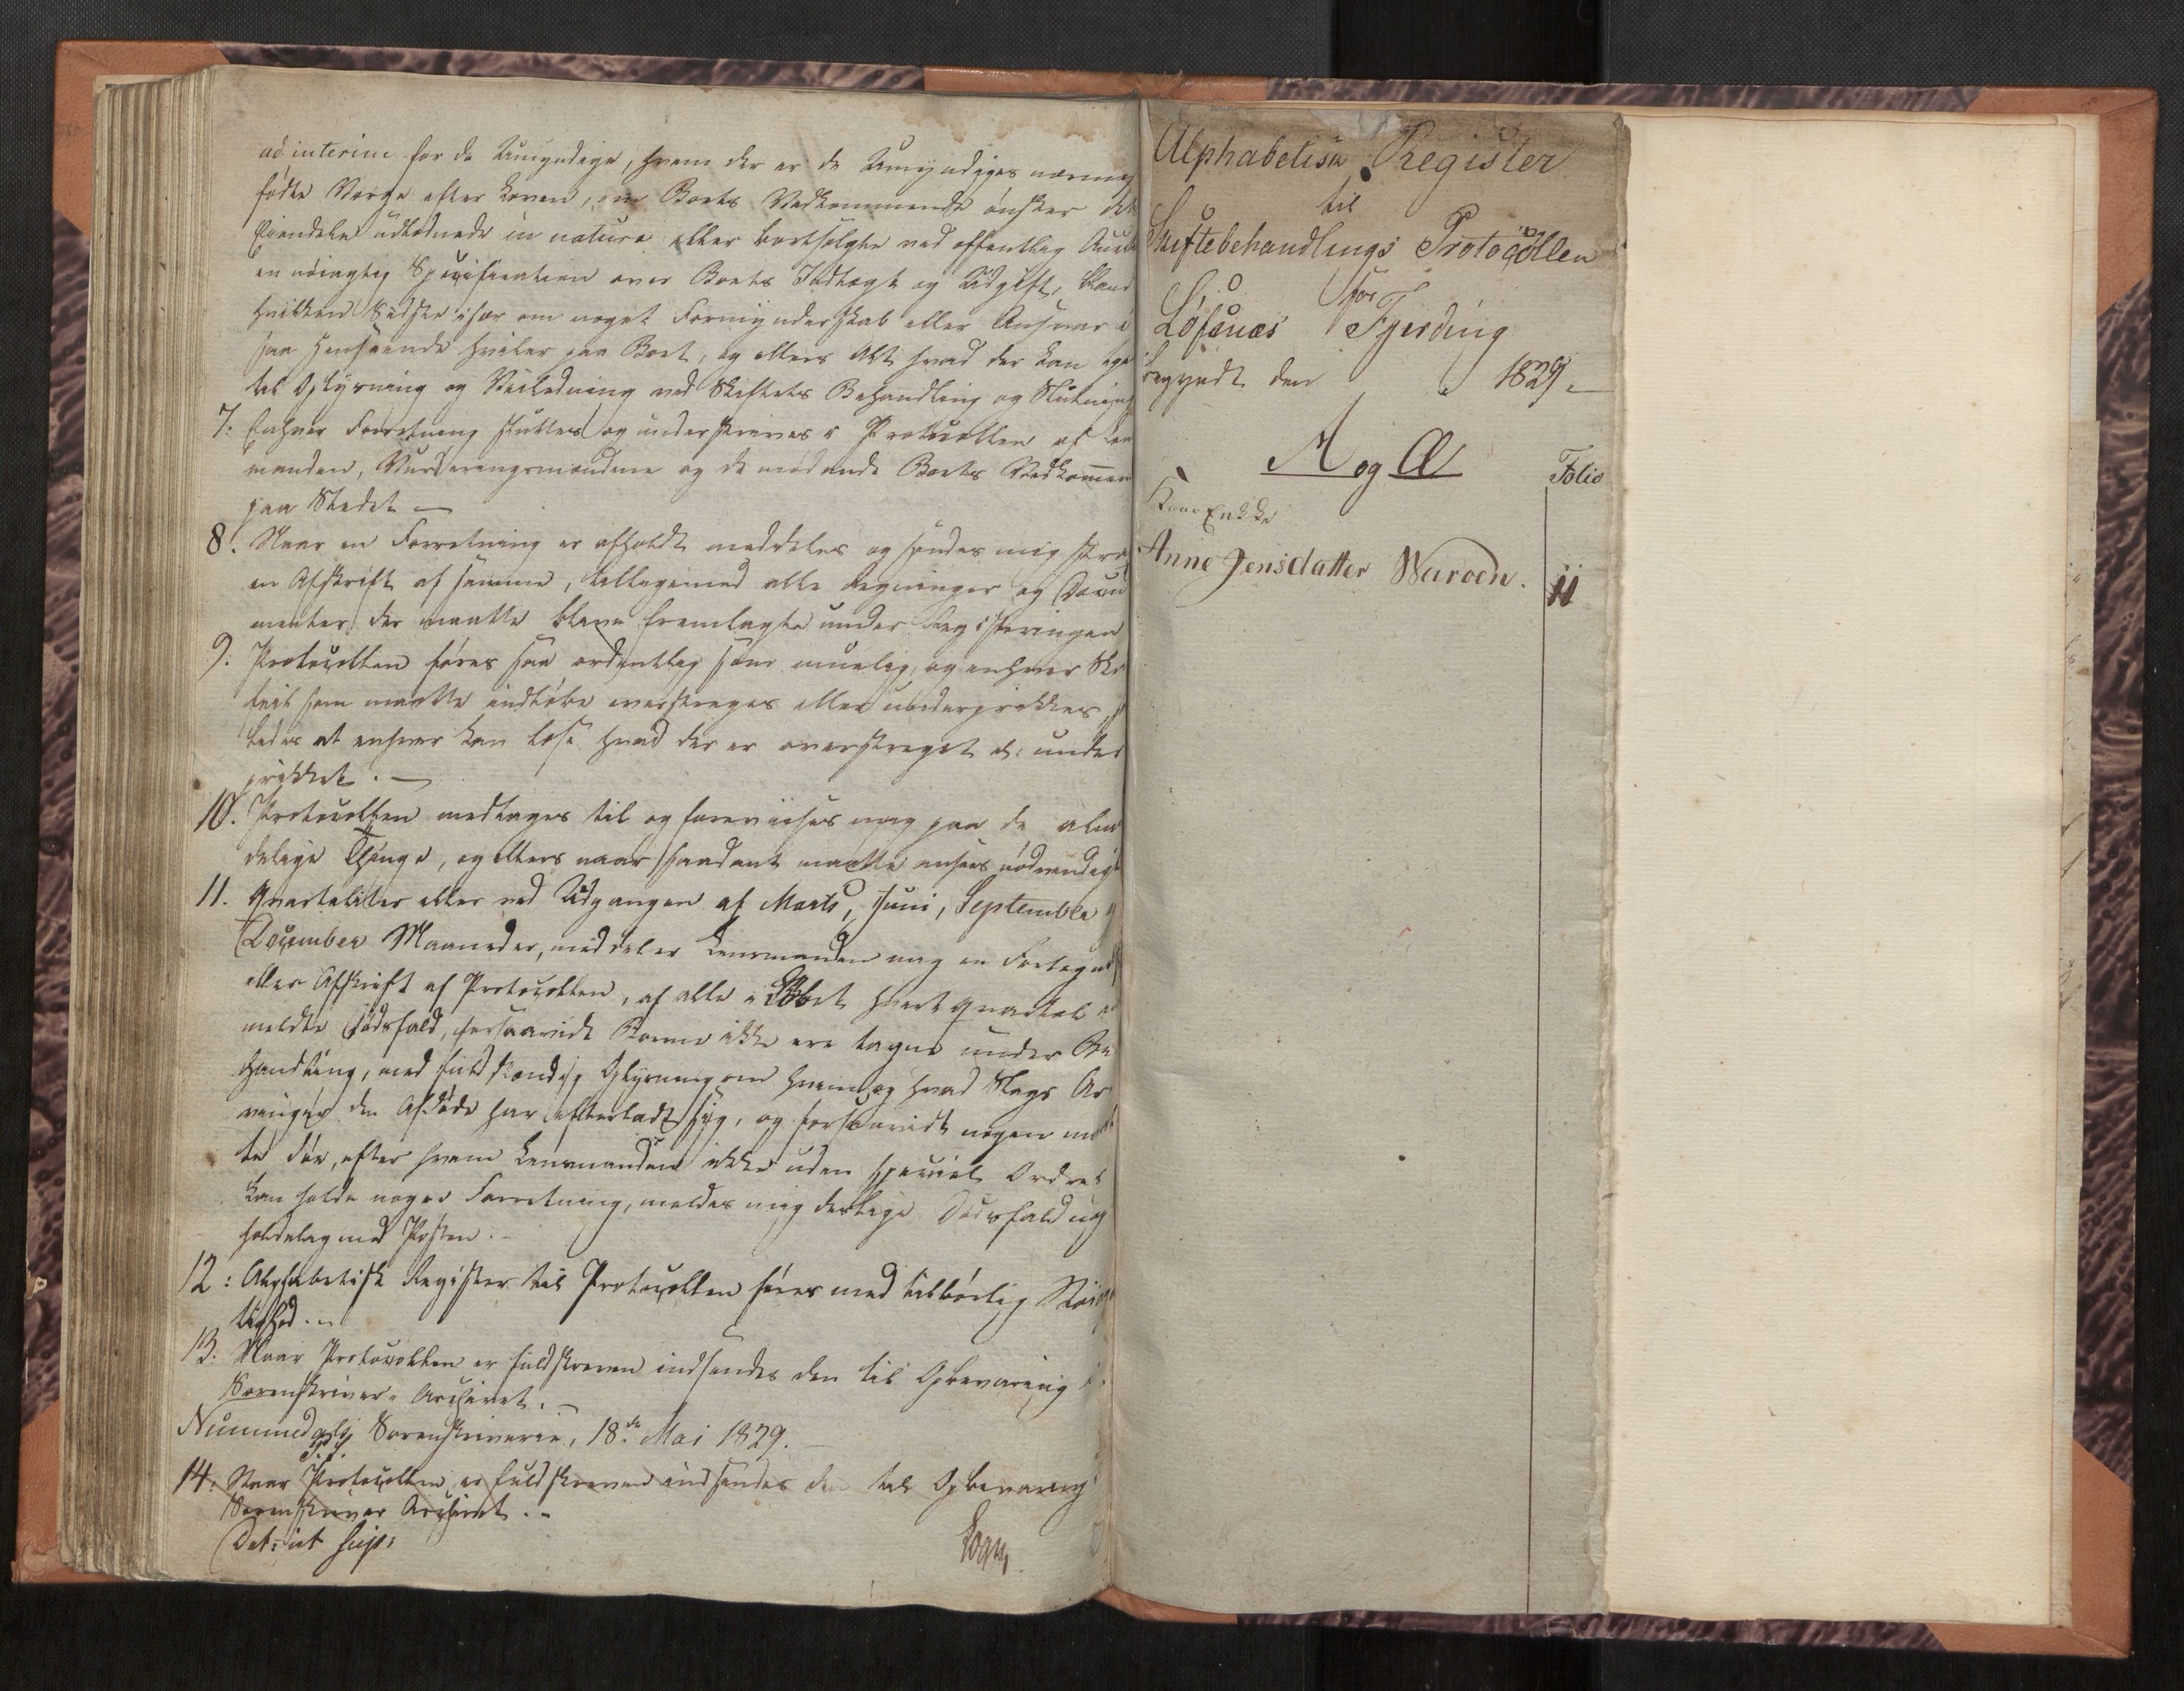 ad interim for de Umyndige, hvem der er de Umyndiges nærmes
fødte Værge efter Loven, om Boets Vedkommende ønsker det
Eiendele udlodnede in natura eller bortsolgte ved offentlig Auct
en nøiagtig Specification over Boets Indtægt og Udgift,
hvilken især om noget Formynderskab eller Ansvar i
saa Henseende hviler paa Boet, og ellers Alt hvad der kan
til Oplysning og Veiledning ved Skiftets Behandling og Slutning
7. Enhver Forretning sluttes og underskrives i Protocollen af Len
manden, Vurderingsmændene og de mødende Boets Vedkommen
paa Stedet —
8. Naar en Forretning er afholdt meddeles og sendes mig strax
en Afskrift af samme, tilligemed alle Regninger og Docu
menter der maatte blive fremlagte under Registeringen
9. Protocollen føres saa ordentlig som muelig, og enhver Skr
feil som maatte indløbe overstreges eller underprikkes, s
ledes at enhver kan læse hvad der er overstreget el: under
prikket. —
10. Protocollen medtages til og foreviises mig paa de almi
delige Thinge, og ellers naar saadant maatte ansees nødvendigt
11. Qvartaliter eller ved Udgangen af Marts, Juni, September og
December Maaneder, meddeler Lensmanden mig en Fortegnels
eller Afskrift af Protocollen, af alle i Løbet hvert Qvartal an
meldte Dødsfald, forsaavidt Boerne ikke ere tagne under Be
handling, med fuldstændig Oplysning om hvem og hvad Slags Ar
vinger den Afdøde har efterladt sig, og forsaavidt nogen maat
te døe, efter hvem Lensmanden ikke uden speciel Ordre
kan holde nogen Forretning, meldes mig deslige Dødsfald
med Posten. —
12: Alphabetisk Register til Protocollen føres med tilbørlig Nøiag
tighed. —
13. Naar Protocollen er fuldskreven indsendes den til Opbevaring i
Sorenskriver-Archivet. —
Nummedals Sorenskriverie, 18de Mai 1829. —
14. Naar Protocollen er fuldskreven indsendes den til Opbevaring i
Sorenskriver Archivet. . -
Dat: ut sup:
Alphabetisk Register
til
Skiftebehandlings Protocollen
for
Løfsnæs Fjerding
begyndt den 1829. —
A og Æ Folio
Enke
Anne Jensdatter Waroen. 11